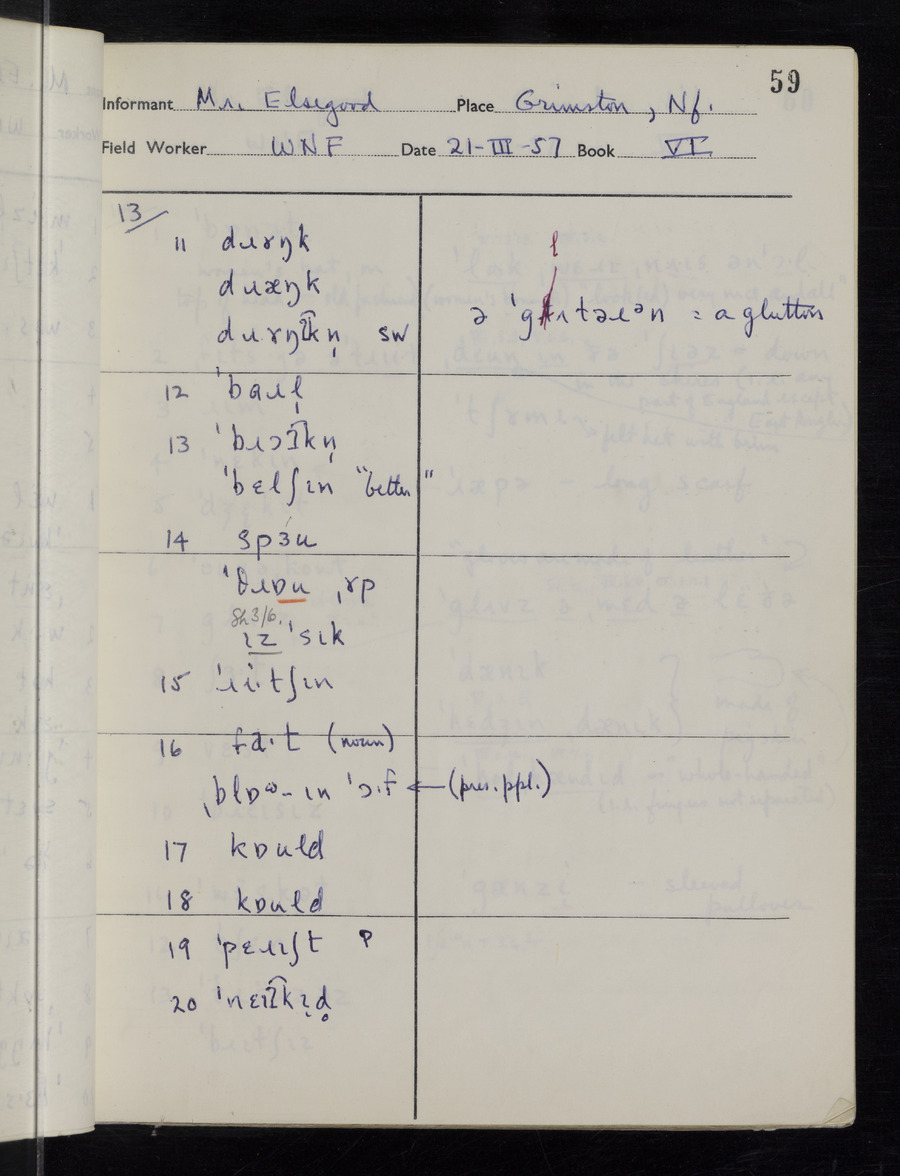 59
Informant Mr. Elsegood Place Grimston, Nf.
Field Worker WNF Date 21-III-57 Book VI
13/
11 dɹɤŋk
dɹæŋk
dɹɤŋʔ͡kṇ sw
l
ə ˈgʌtəɹən = a glutton
12 ˈbaɹḷ
13 ˈbɪɔʔ͡kṇ
ˈbɛlʃɪn "better"
14 spɜu
ˈθɹɒu ˌɤp
Sh 3/6.
ɪz ˈsɪk
15 ˈɹiːtʃɪn
16 fɑ·t (noun)
ˌblɒω-ɪn ˈɔːf ← (pres. ppl.)
17 kɒuld
18 kɒuld
19 ˈpɛɹɪʃt P
20 ˈnɛɪʔ͡kɪd̥